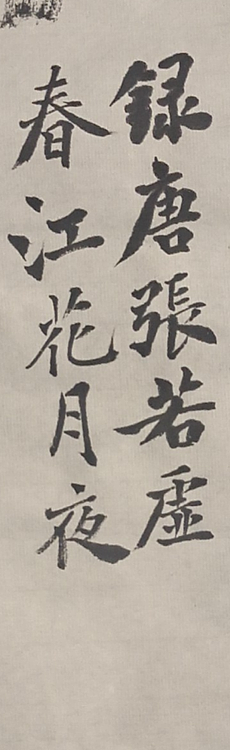 録唐張若虛
春江花月夜